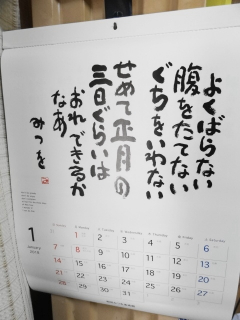 よくばらない
腹をたてない
ぐちをいわない
せめて正月の
三日ぐらいは
おれできるか
なあ
みつを
1
1 2 3 4 5 6
7 8 9 10 11 12 13
14 15 16 17 18 19 20
21 22 23 24 25 26 27
28 29 30 31